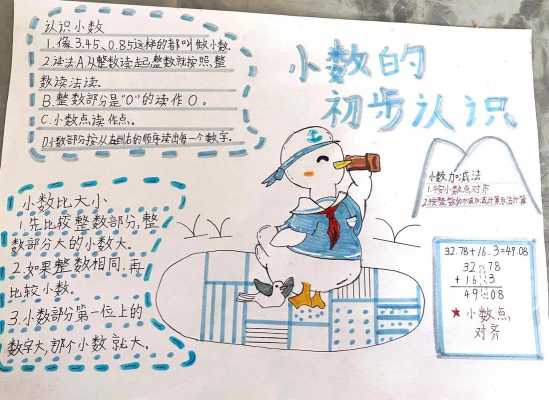 认识小数
1.像3.45、0.85这样的都叫做小数.
2.读法:A从整数读起,整数就按照,整
数读法读.
B.整数部分是"0"的读作0。
C.小数点读作点.
D.小数部分按从左到右的顺序读出每一个数字.
小数的
初步认识
小数比大小
1.先比较整数部分,整
数部分大的小数大。
2.如果整数相同,再
比较小数.
3.小数部分第一位上的
数字大,那个小数就大。
小数加减法
1.将小数点对齐
2.按整数的加减法计算方法计算
32.78+16.3=49.08
32.78
+ 16.3
49.08
★小数点
对齐